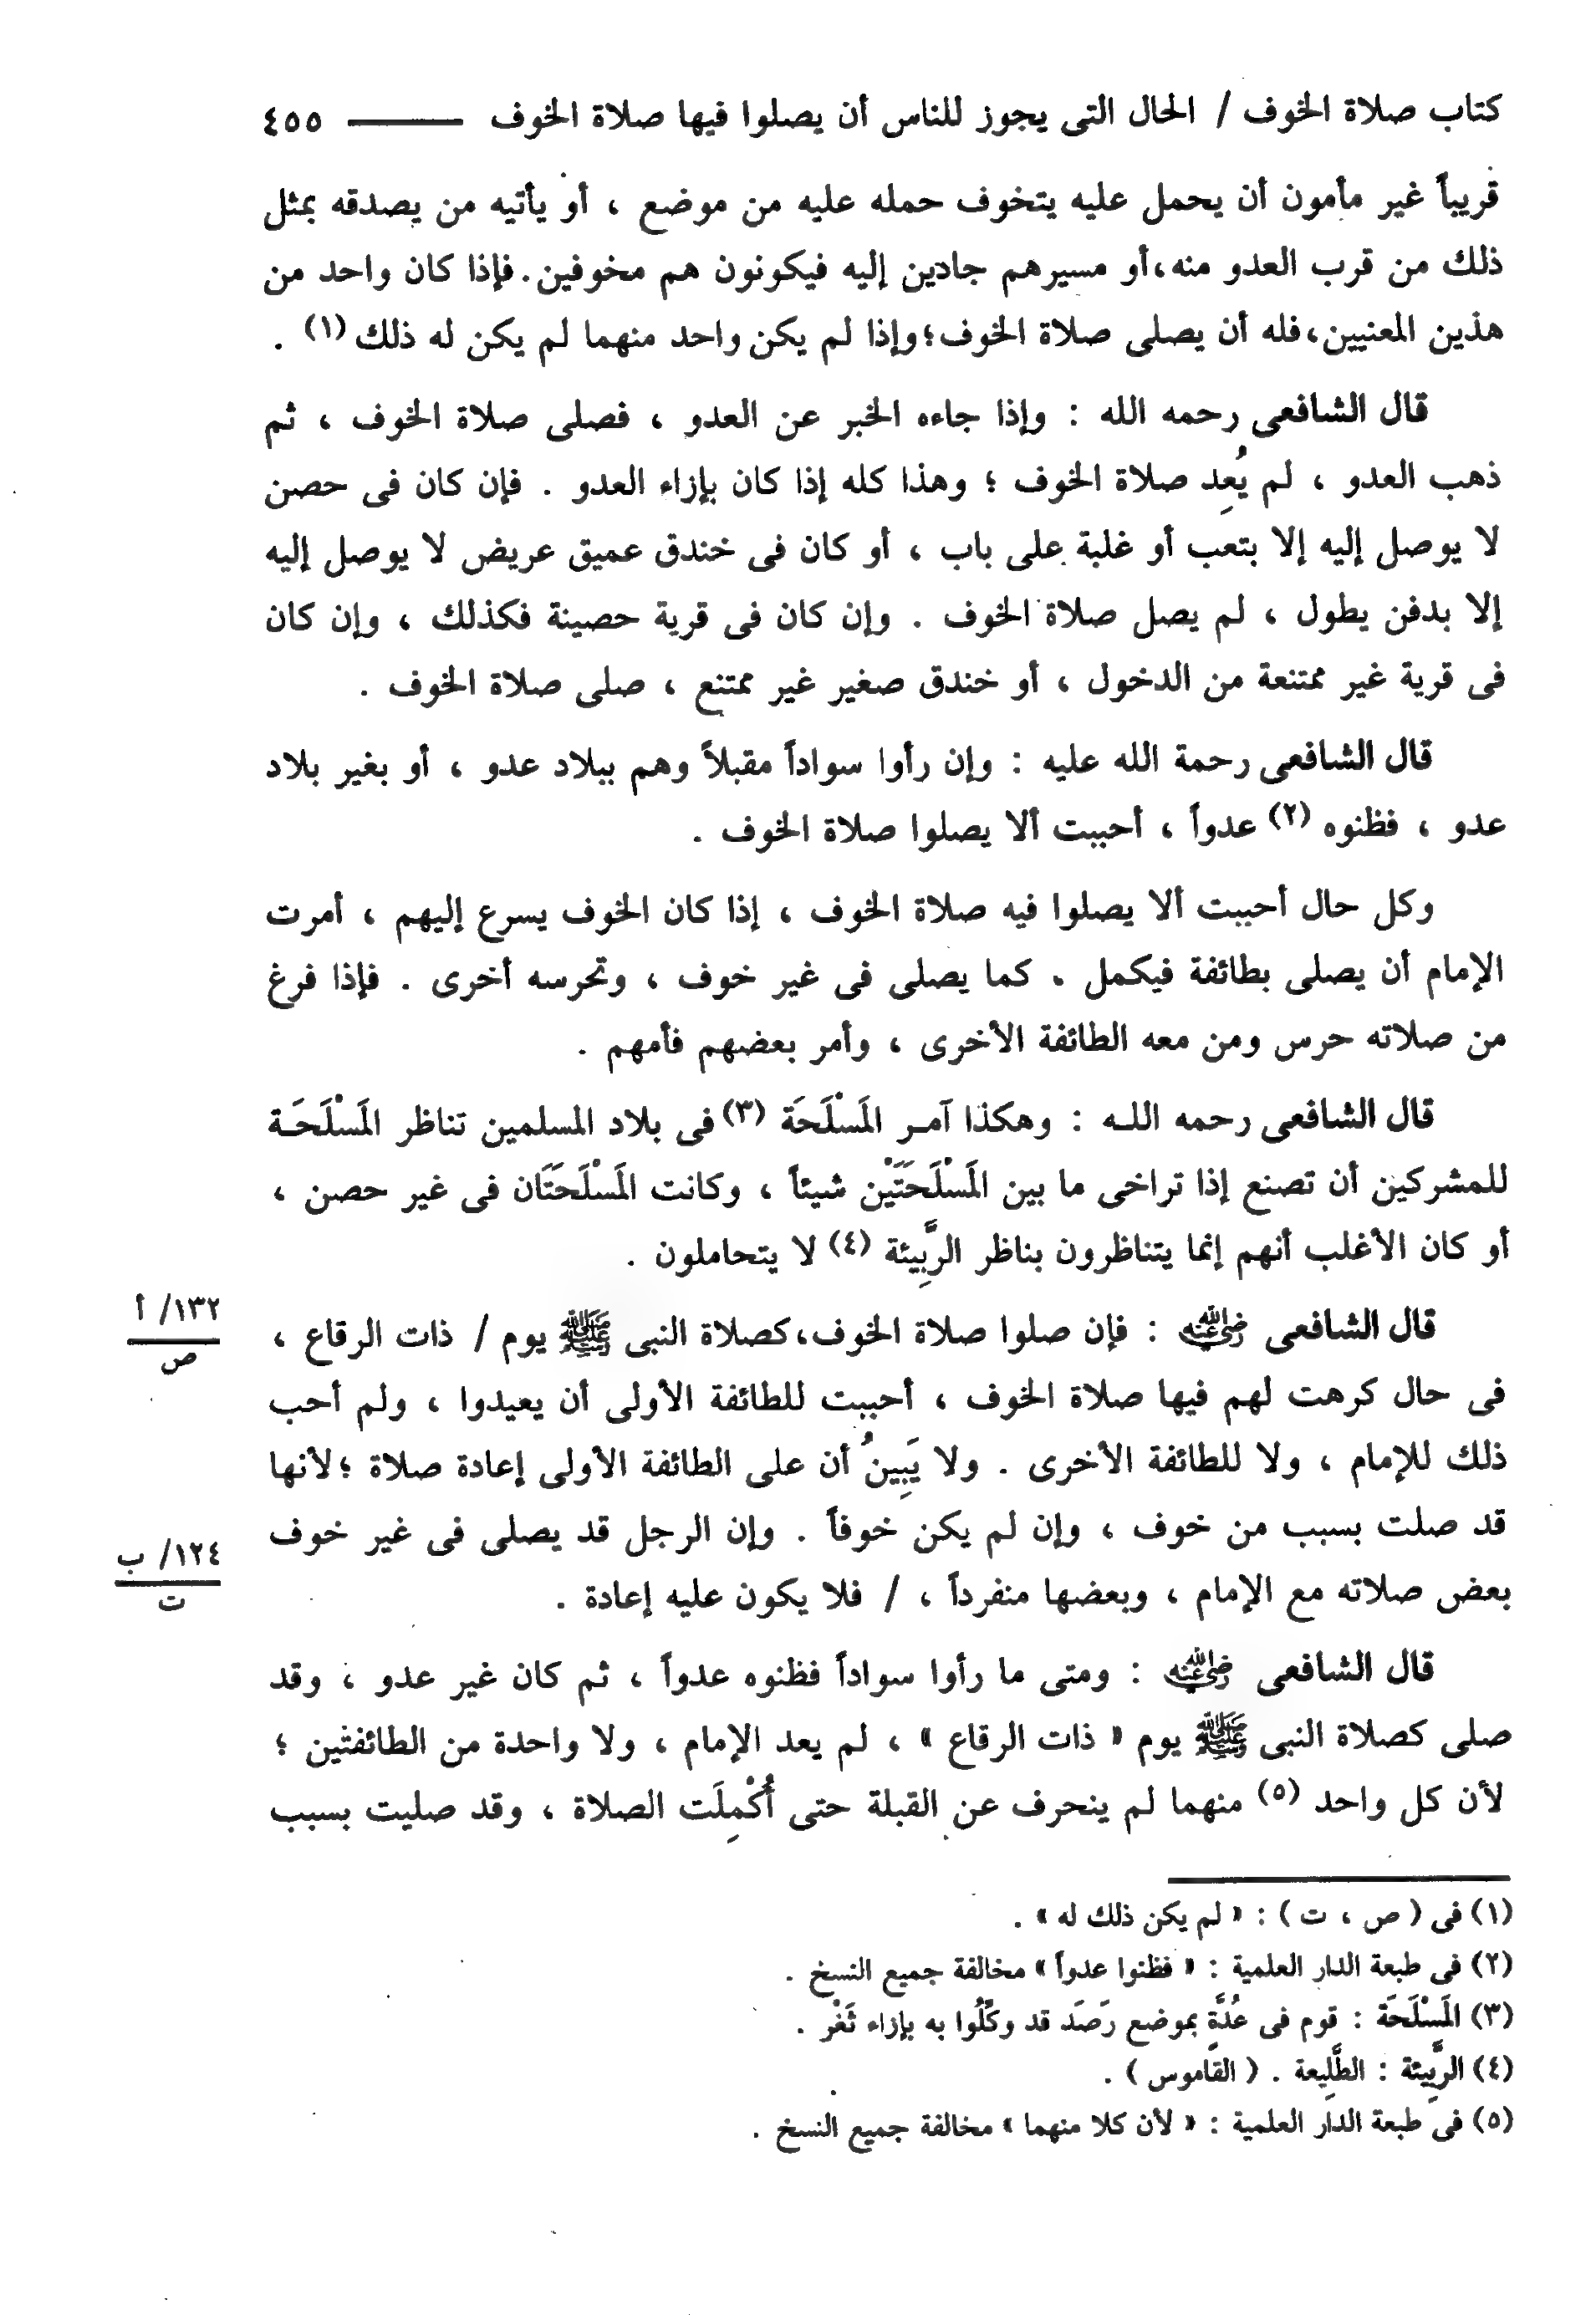 كتاب صلاة الخوف / الحال التى يجوز للناس أن يصلوا فيها صلاة الخوف ــــــــ ٤٥٥
قريباً غير مأمون أن يحمل عليه يتخوف حمله عليه من موضع ، أو يأتيه من يصدقه بمثل
ذلك من قرب العدو منه،أو مسيرهم جادين إليه فيكونون هم مخوفين.فإذا كان واحد من
هذين المعنيين،فله أن يصلى صلاة الخوف؛وإذا لم يكن واحد منهما لم يكن له ذلك (١) .
قال الشافعى رحمه الله : وإذا جاءه الخبر عن العدو ، فصلى صلاة الخوف ، ثم
ذهب العدو ، لم يُعِد صلاة الخوف ؛ وهذا كله إذا كان بإزاء العدو . فإن كان فى حصن
لا يوصل إليه إلا بتعب أو غلبة على باب ، أو كان فى خندق عميق عريض لا يوصل إليه
إلا بدفن يطول ، لم يصل صلاة الخوف . وإن كان فى قرية حصينة فكذلك ، وإن كان
فى قرية غير ممتنعة من الدخول ، أو خندق صغير غير ممتنع ، صلى صلاة الخوف .
قال الشافعى رحمة الله عليه : وإن رأوا سواداً مقبلاً وهم ببلاد عدو ، أو بغير بلاد
عدو ، فظنوه (٢) عدواً ، أحببت ألا يصلوا صلاة الخوف .
وكل حال أحببت ألا يصلوا فيه صلاة الخوف ، إذا كان الخوف يسرع إليهم ، أمرت
الإمام أن يصلى بطائفة فيكمل . كما يصلى فى غير خوف ، وتحرسه أخرى . فإذا فرغ
من صلاته حرس ومن معه الطائفة الأخرى ، وأمر بعضهم فأمهم .
قال الشافعى رحمه اللـه : وهكذا آمـر المَسْلَحَة (٣) فى بلاد المسلمين تناظر المَسْلَحَـة
للمشركين أن تصنع إذا تراخى ما بين المَسْلَحَتَيْن شيئاً ، وكانت المَسْلَحَتَان فى غير حصن ،
أو كان الأغلب أنهم إنما يتناظرون بناظر الرَّبِيئة (٤) لا يتحاملون .
قال الشافعى رضي الله عنه : فإن صلوا صلاة الخوف،كصلاة النبى ﷺ يوم / ذات الرقاع ،
١٣٢/ أ
ص
فى حال كرهت لهم فيها صلاة الخوف ، أحببت للطائفة الأولى أن يعيدوا ، ولم أحب
ذلك للإمام ، ولا للطائفة الأخرى . ولا يَبِينُ أن على الطائفة الأولى إعادة صلاة ؛لأنها
قد صلت بسبب من خوف ، وإن لم يكن خوفاً . وإن الرجل قد يصلى فى غير خوف
١٢٤/ ب
ت
بعض صلاته مع الإمام ، وبعضها منفرداً ، / فلا يكون عليه إعادة .
قال الشافعى رضي الله عنه : ومتى ما رأوا سواداً فظنوه عدواً ، ثم كان غير عدو ، وقد
صلى كصلاة النبى ﷺ يوم « ذات الرقاع » ، لم يعد الإمام ، ولا واحدة من الطائفتين ؛
لأن كل واحد (٥) منهما لم ينحرف عن القبلة حتى أُكْمِلَت الصلاة ، وقد صليت بسبب
(١) فى ( ص ، ت ) : « لم يكن ذلك له » .
(٢) فى طبعة الدار العلمية : « فظنوا عدواً » مخالفة جميع النسخ .
(٣) المَسْلَحَة : قوم فى عُدَّةٍ بموضع رَصَد قد وكِّلُوا به بإزاء ثَغْر .
(٤) الرَّبِيئة : الطَّلِيعة . ( القاموس ) .
(٥) فى طبعة الدار العلمية : « لأن كلا منهما » مخالفة جميع النسخ .